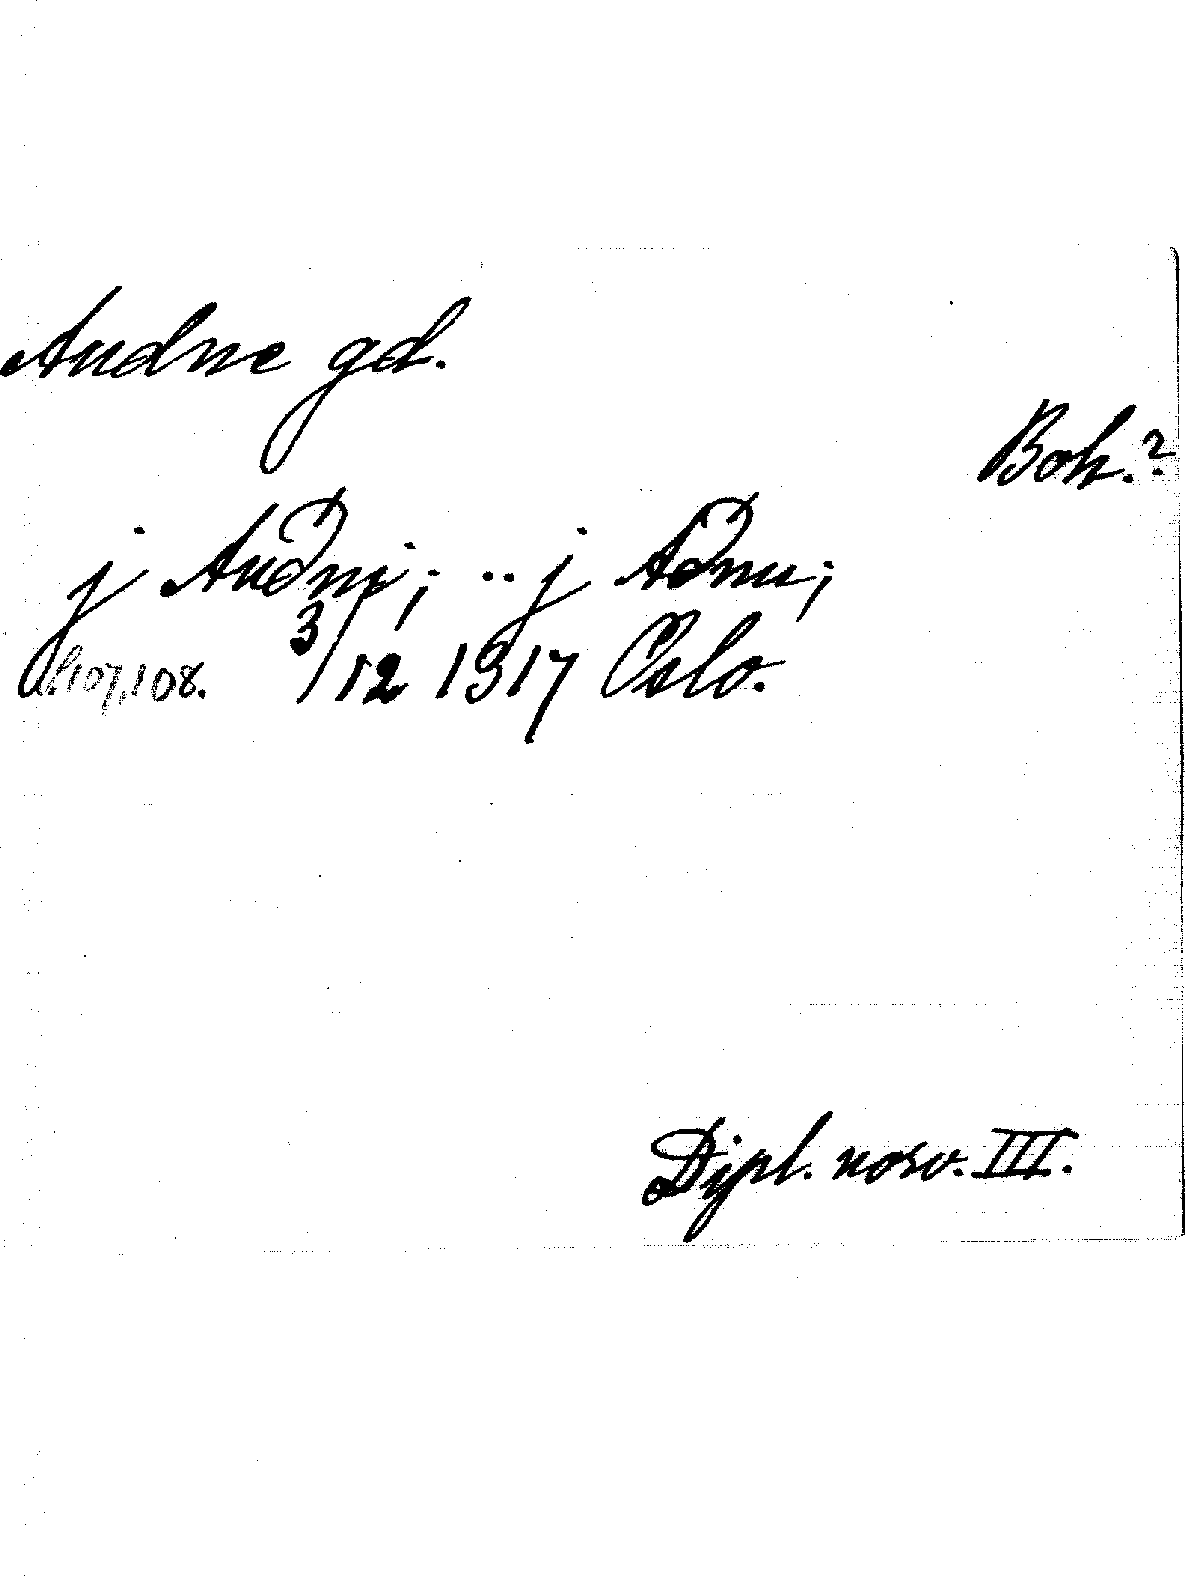 Audne gd.
Boh.?
j Auðni; .. j Aðnu;
s. 107, 108. 3/12 1317 Oslo.
Dipl. norv. III.